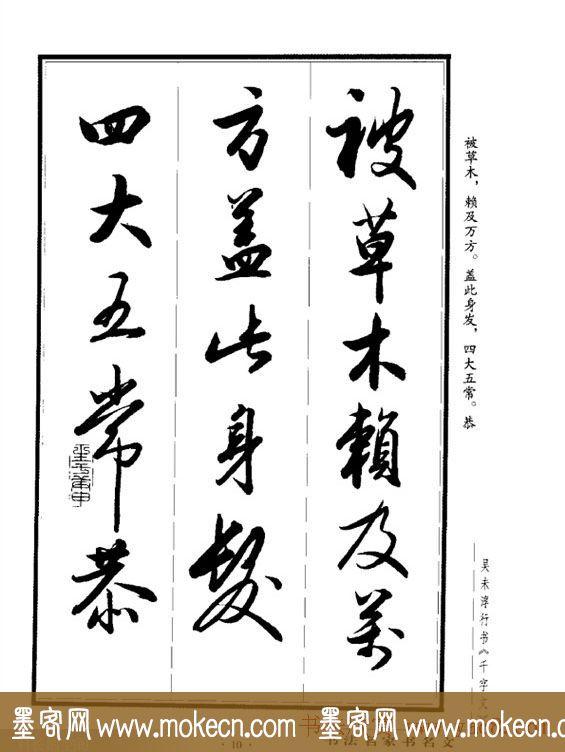 被草木賴及萬
方盖此身髮
四大五常恭
被草木，赖及万方。盖此身发，四大五常。恭
吴未淳行书《千字文》
墨客网 www.mokecn.com 墨客网 www.mokecn.com 墨客网 www.mokecn.com
· 10 ·